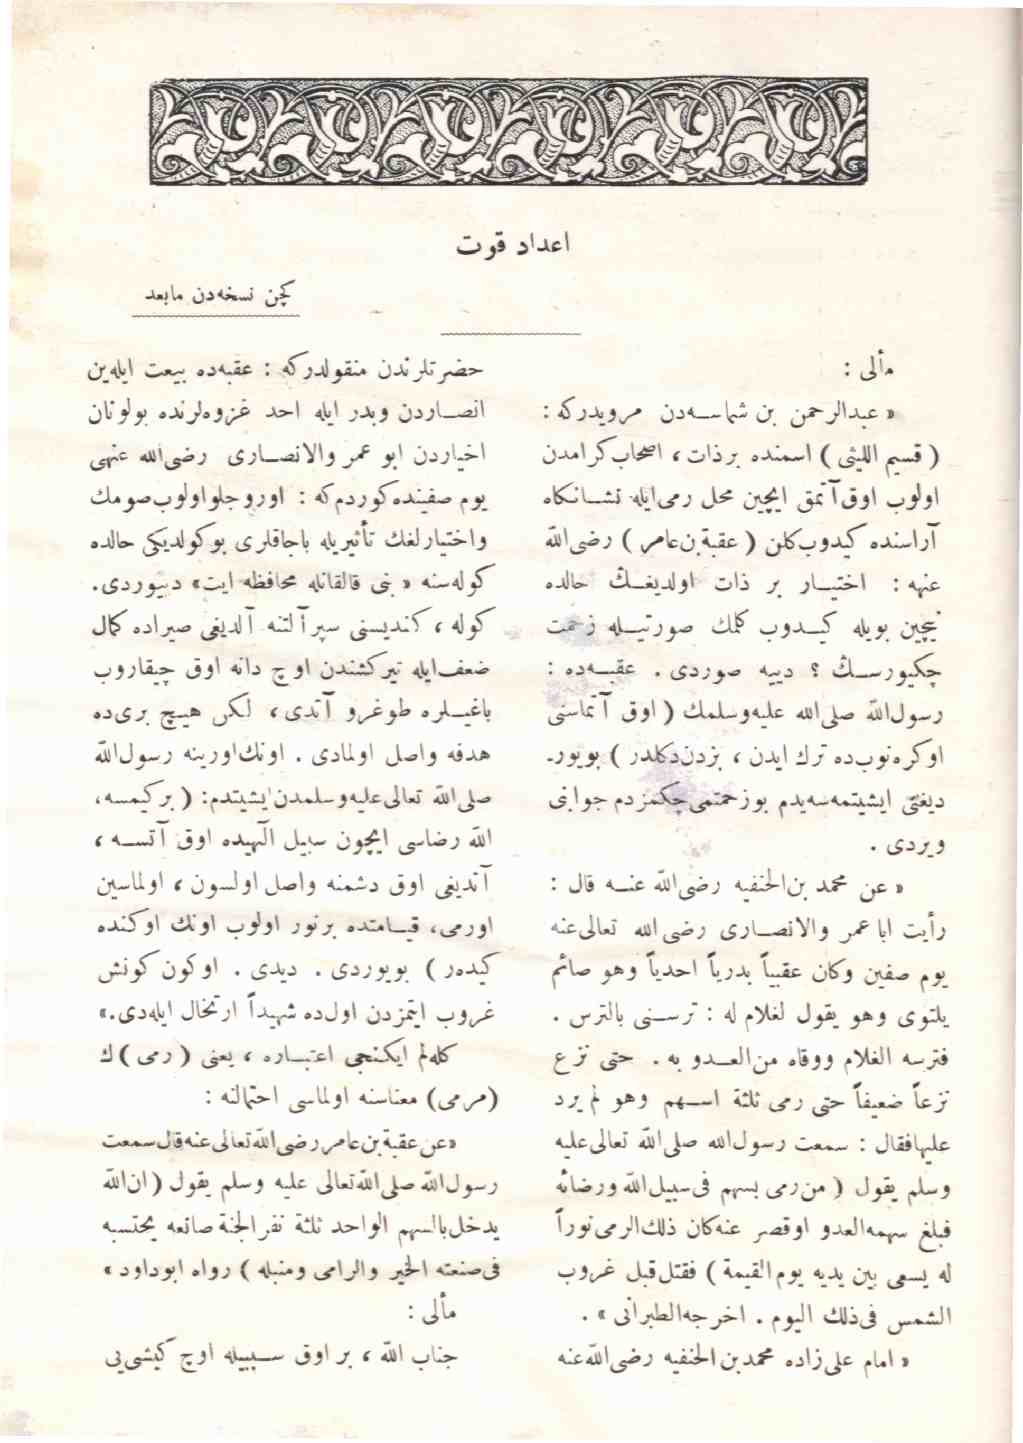 اعداد قوت
كچن نسخه‌دن مابعد
مألی :
« عبدالرحمن بن شماســه‌دن مرويدركه :
( قسيم الليثی ) اسمنده برذات ، اصحاب كرامدن
اولوب اوق آتمق ايچين محل رمی‌ايله نشــانكاه
آراسنده كيدوب كلن ( عقبة بن عامر ) رضی‌الله
عنهه : اختيــار بر ذات اولديغــك حالده
نيچين بويله كيــدوب كلمك صورتيــله زحمت
چكيورســك ؟ دييه صوردی . عقبــه‌ده :
رسول‌الله صلی‌الله عليه‌وسلمك ( اوق آتماسنی
اوكره‌نوب‌ده ترك ايدن ، بزدن‌دكلدر ) بويور۔
ديغنی ايشيتمه‌سه‌يدم بوزحمتمی‌چكمزدم جوابنی
ويردی .
« عن محمد بن‌الحنفيه رضی‌الله عنــه قال :
رأيت ابا عمر والانصــاری رضی‌الله تعالی‌عنه
يوم صفين وكان عقبياً بدرياً احدياً وهو صائم
يلتوی وهو يقول لغلام له : ترســنی بالترس .
فترسه الغلام ووقاه من‌العــدو به . حتی نزع
نزعاً ضعيفاً حتی رمی ثلثة اســهم وهو لم يرد
عليهافقال : سمعت رسول‌الله صلی‌الله تعالی‌عليه
وسلم يقول ( من‌رمی بسهم فی‌سبيل‌الله ورضائه
فبلغ سهمه‌العدو اوقصر عنه‌كان ذلك‌الرمی‌نوراً
له يسعی بين يديه يوم‌القيمة ) فقتل‌قبل غروب
الشمس فی‌ذلك اليوم . اخرجه‌الطبرانی » .
« امام علی‌زاده محمدبن الحنفيه رضی‌الله‌عنه
حضرتلرندن منقولدركه : عقبه‌ده بيعت ايله‌ين
انصــاردن وبدر ايله احد غزوه‌لرنده بولونان
اخياردن ابو عمر والانصــاری رضی‌الله عنهی
يوم صفينده‌كوردم‌كه : اوروجلواولوب‌صومك
واختيارلغك تأثيريله باجاقلری بوكولديكی حالده
كوله‌سنه « بنی قالقانله محافظه ايت» دييوردی.
كوله ، كنديسنی سپرآلتنه آلديغی صيراده كمال
ضعف‌ايله تيركشندن اوچ دانه اوق چيقاروب
باغيــلره طوغرو آتدی ، لكن هيــچ بری‌ده
هدفه واصل اولمادی . اونك‌اورينه رسول‌الله
صلی‌الله تعالی‌عليه‌وسلمدن ايشيتدم: ( بركيمسه،
الله رضاسی ايچون سبيل الٓهيده اوق آتســه ،
آتديغی اوق دشمنه واصل اولسون ، اولماسين
اورمی، قيــامتده برنور اولوب اونك اوكنده
كيده‌ر ) بويوردی . ديدی . اوكون كونش
غروب ايتمزدن اول‌ده شهيداً ارتحال ايله‌دی.»
كله‌لم ايكنجی اعتبــاره ، يعنی ( رمی )ك
(مرمی) معناسنه اولماسی احتمالنه :
«عن عقبة بن عامر رضی‌الله‌تعالی‌عنه‌قال‌سمعت
رسول‌الله صلی‌الله‌تعالی عليه وسلم يقول ( ان‌الله
يدخل‌بالسهم الواحد ثلثة نفرالجنة صانعه يحتسبه
فی‌صنعته الخير والرامی ومنبله ) رواه ابوداود »
مألی :
جناب الله ، بر اوق ســببيله اوچ كيشی‌يی